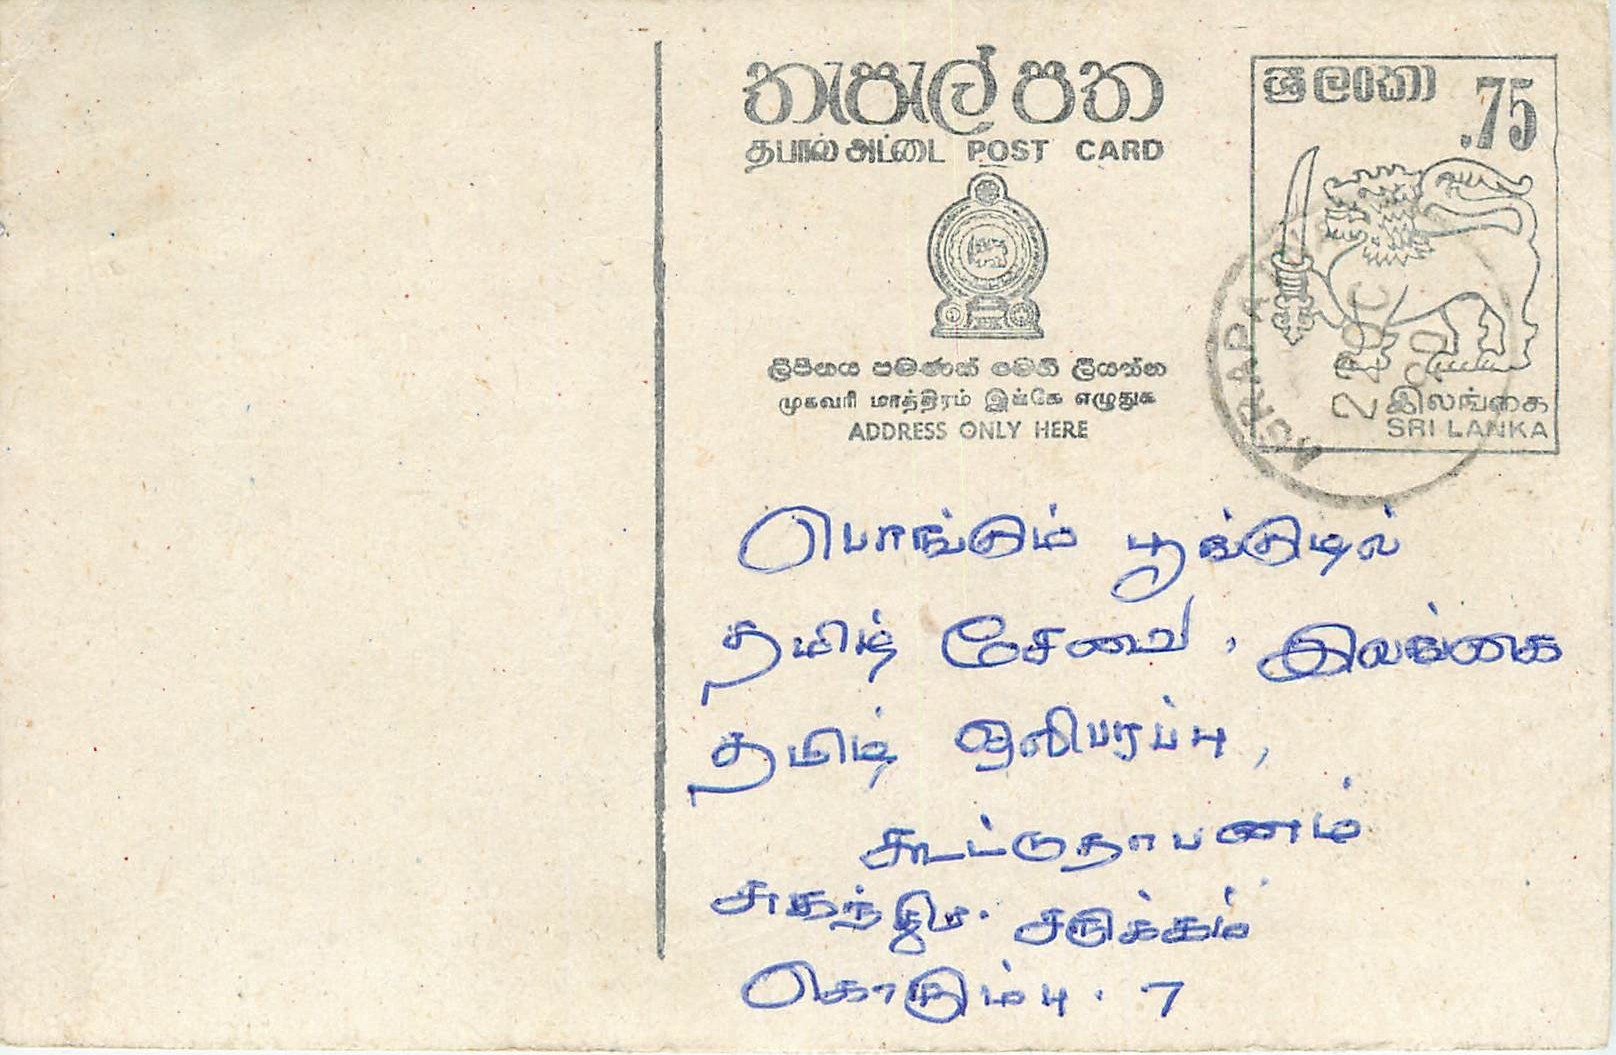 තැපැල් පත
தபால் அட்டை POST CARD
ශ්‍රී ලංකා .75
ලිපිනය පමණක් මෙහි ලියන්න
முகவரி மாத்திரம் இங்கே எழுதுக
ADDRESS ONLY HERE
இலங்கை
SRI LANKA
22 DC
பொங்கும் பூங்குடில்
தமிழ் சேவை, இலங்கை
தமிழ் ஒலிபரப்பு,
கூட்டுதாபணம்
சதுக்கம்
கொழும்பு. 7